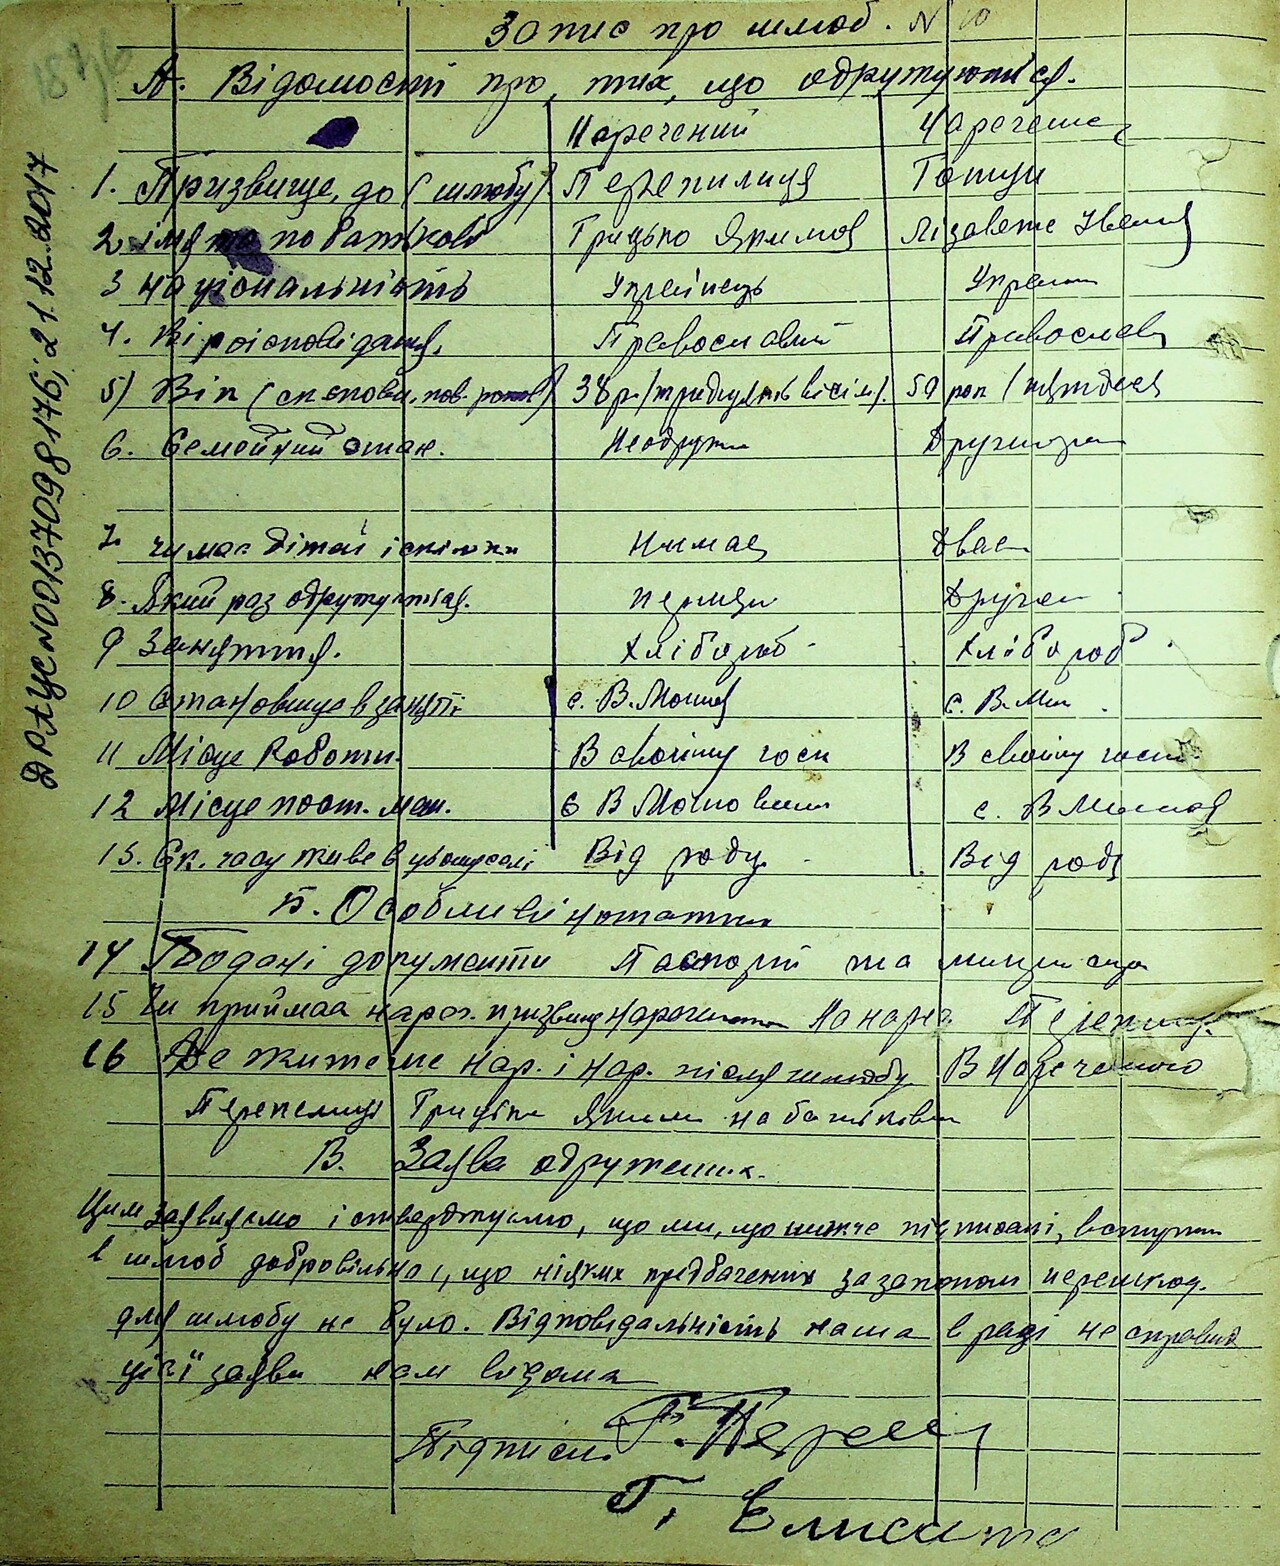 Запис про шлюб. N 10
А. Відомості про тих, що одружуються.
Наречений Наречена
1. Призвище, до (шлюбу) Перепилиця
2. імя та по батькові Грицько Якимов Лізавета Іванов
3 національність Українець Украін
4. Віроісповідання. Православний Православ
5) Вік (сполови. пов. років) 38 р. (тридцять вісім). 50 рок (пятдеся
6. Семейний стан. Неодруж
7. чи має дітей і скільки Нимає Двае
8. Який раз одружується. перший Друге
9 Заняття. Хлібороб Хлібороб
10 Становище в заняті с. В.
11 Місце Работи. В своїму госп В своїму госп.
12 Місце пост. меш. с. В с. В
13. Ск. часу живе в цьому селі Від роду Від роду
Б. Особливі нотатки
14 Подані документи Паспорти та
15 Чи приймає нареч. призвище нареченого На нареч.
16 Де житеме нар. і нар. після шлюбу В Нареченого
Перепелиці Грицька Яким на батьківщ
В. Заява одружених.
Цим заявляемо і стверджуемо, що ми, що нижче підписалі, вступаем
в шлюб добровільно і, що ніяких предбачених за законом перешкод.
для шлюбу не було. Відповідальність наша в разі несправед
цієї заяви нам відома
Підписи. Г. Переп
Г. Елисавта
ДРАЦС N00137098176; 21.12.2017